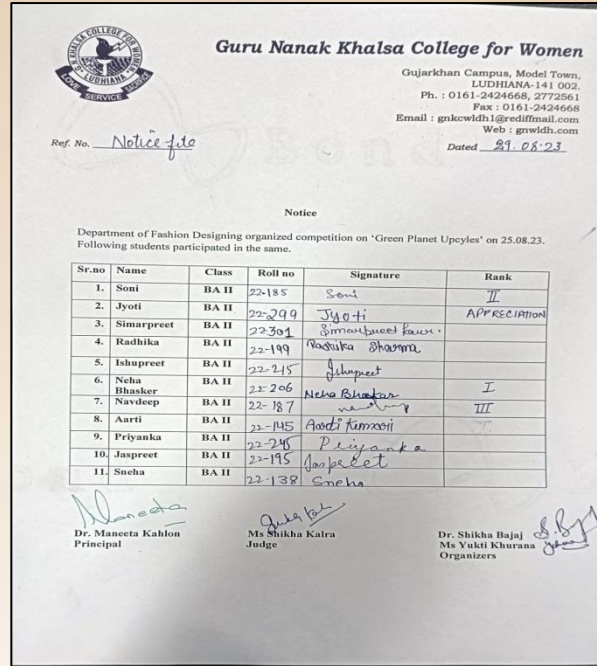 G.N. KHALSA COLLEGE FOR WOMEN
LUDHIANA
LOVE SERVICE SACRIFICE
Guru Nanak Khalsa College for Women
Gujarkhan Campus, Model Town,
LUDHIANA-141 002.
Ph. : 0161-2424668, 2772561
Fax : 0161-2424668
Email : gnkcwldh1@rediffmail.com
Web : gnwldh.com
Ref. No. Notice file
Dated 29.08.23
Notice
Department of Fashion Designing organized competition on 'Green Planet Upcyles' on 25.08.23.
Following students participated in the same.
Sr.no Name Class Roll no Signature Rank
1. Soni BA II 22-185 Soni II
2. Jyoti BA II 22-299 Jyoti APPRECIATION
3. Simarpreet BA II 22-301 Simarpreet Kaur.
4. Radhika BA II 22-199 Radhika Sharma
5. Ishupreet BA II 22-215 Ishupreet
6. Neha Bhasker BA II 22-206 Neha Bhaskar I
7. Navdeep BA II 22-187 III
8. Aarti BA II 22-145 Aarti Kumari
9. Priyanka BA II 22-245 Priyanka
10. Jaspreet BA II 22-195 Jaspreet
11. Sneha BA II 22-138 Sneha
Maneeta
Dr. Maneeta Kahlon
Principal
Ms Shikha Kalra
Judge
Dr. Shikha Bajaj
Ms Yukti Khurana
Organizers